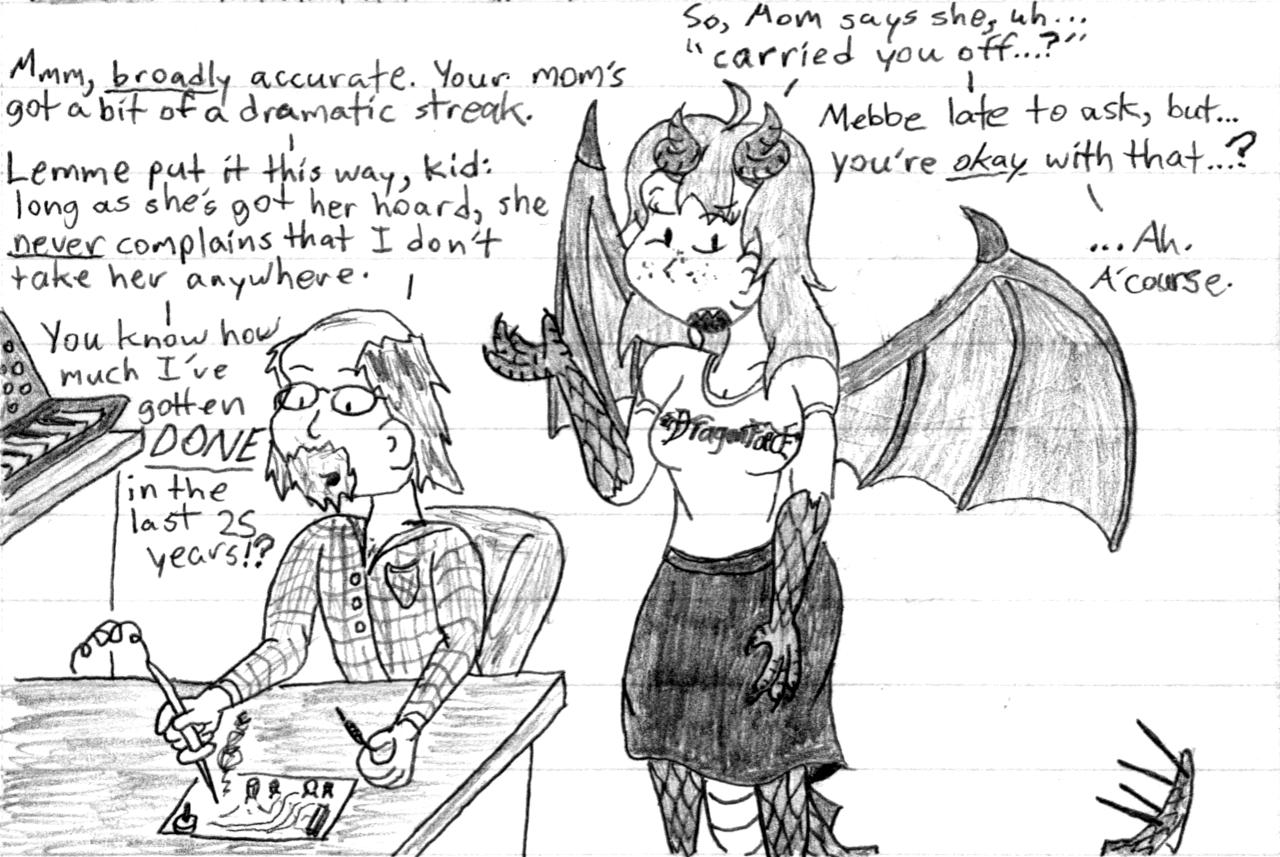 So, Mom says she, uh...
"carried you off...?"
Mebbe late to ask, but...
you're okay with that...?
... Ah.
A'course.
Mmm, broadly accurate. Your mom's
got a bit of a dramatic streak.
Lemme put it this way, kid:
long as she's got her hoard, she
never complains that I don't
take her anywhere.
You know how
much I've
gotten
DONE
in the
last 25
years!?
DragonForce